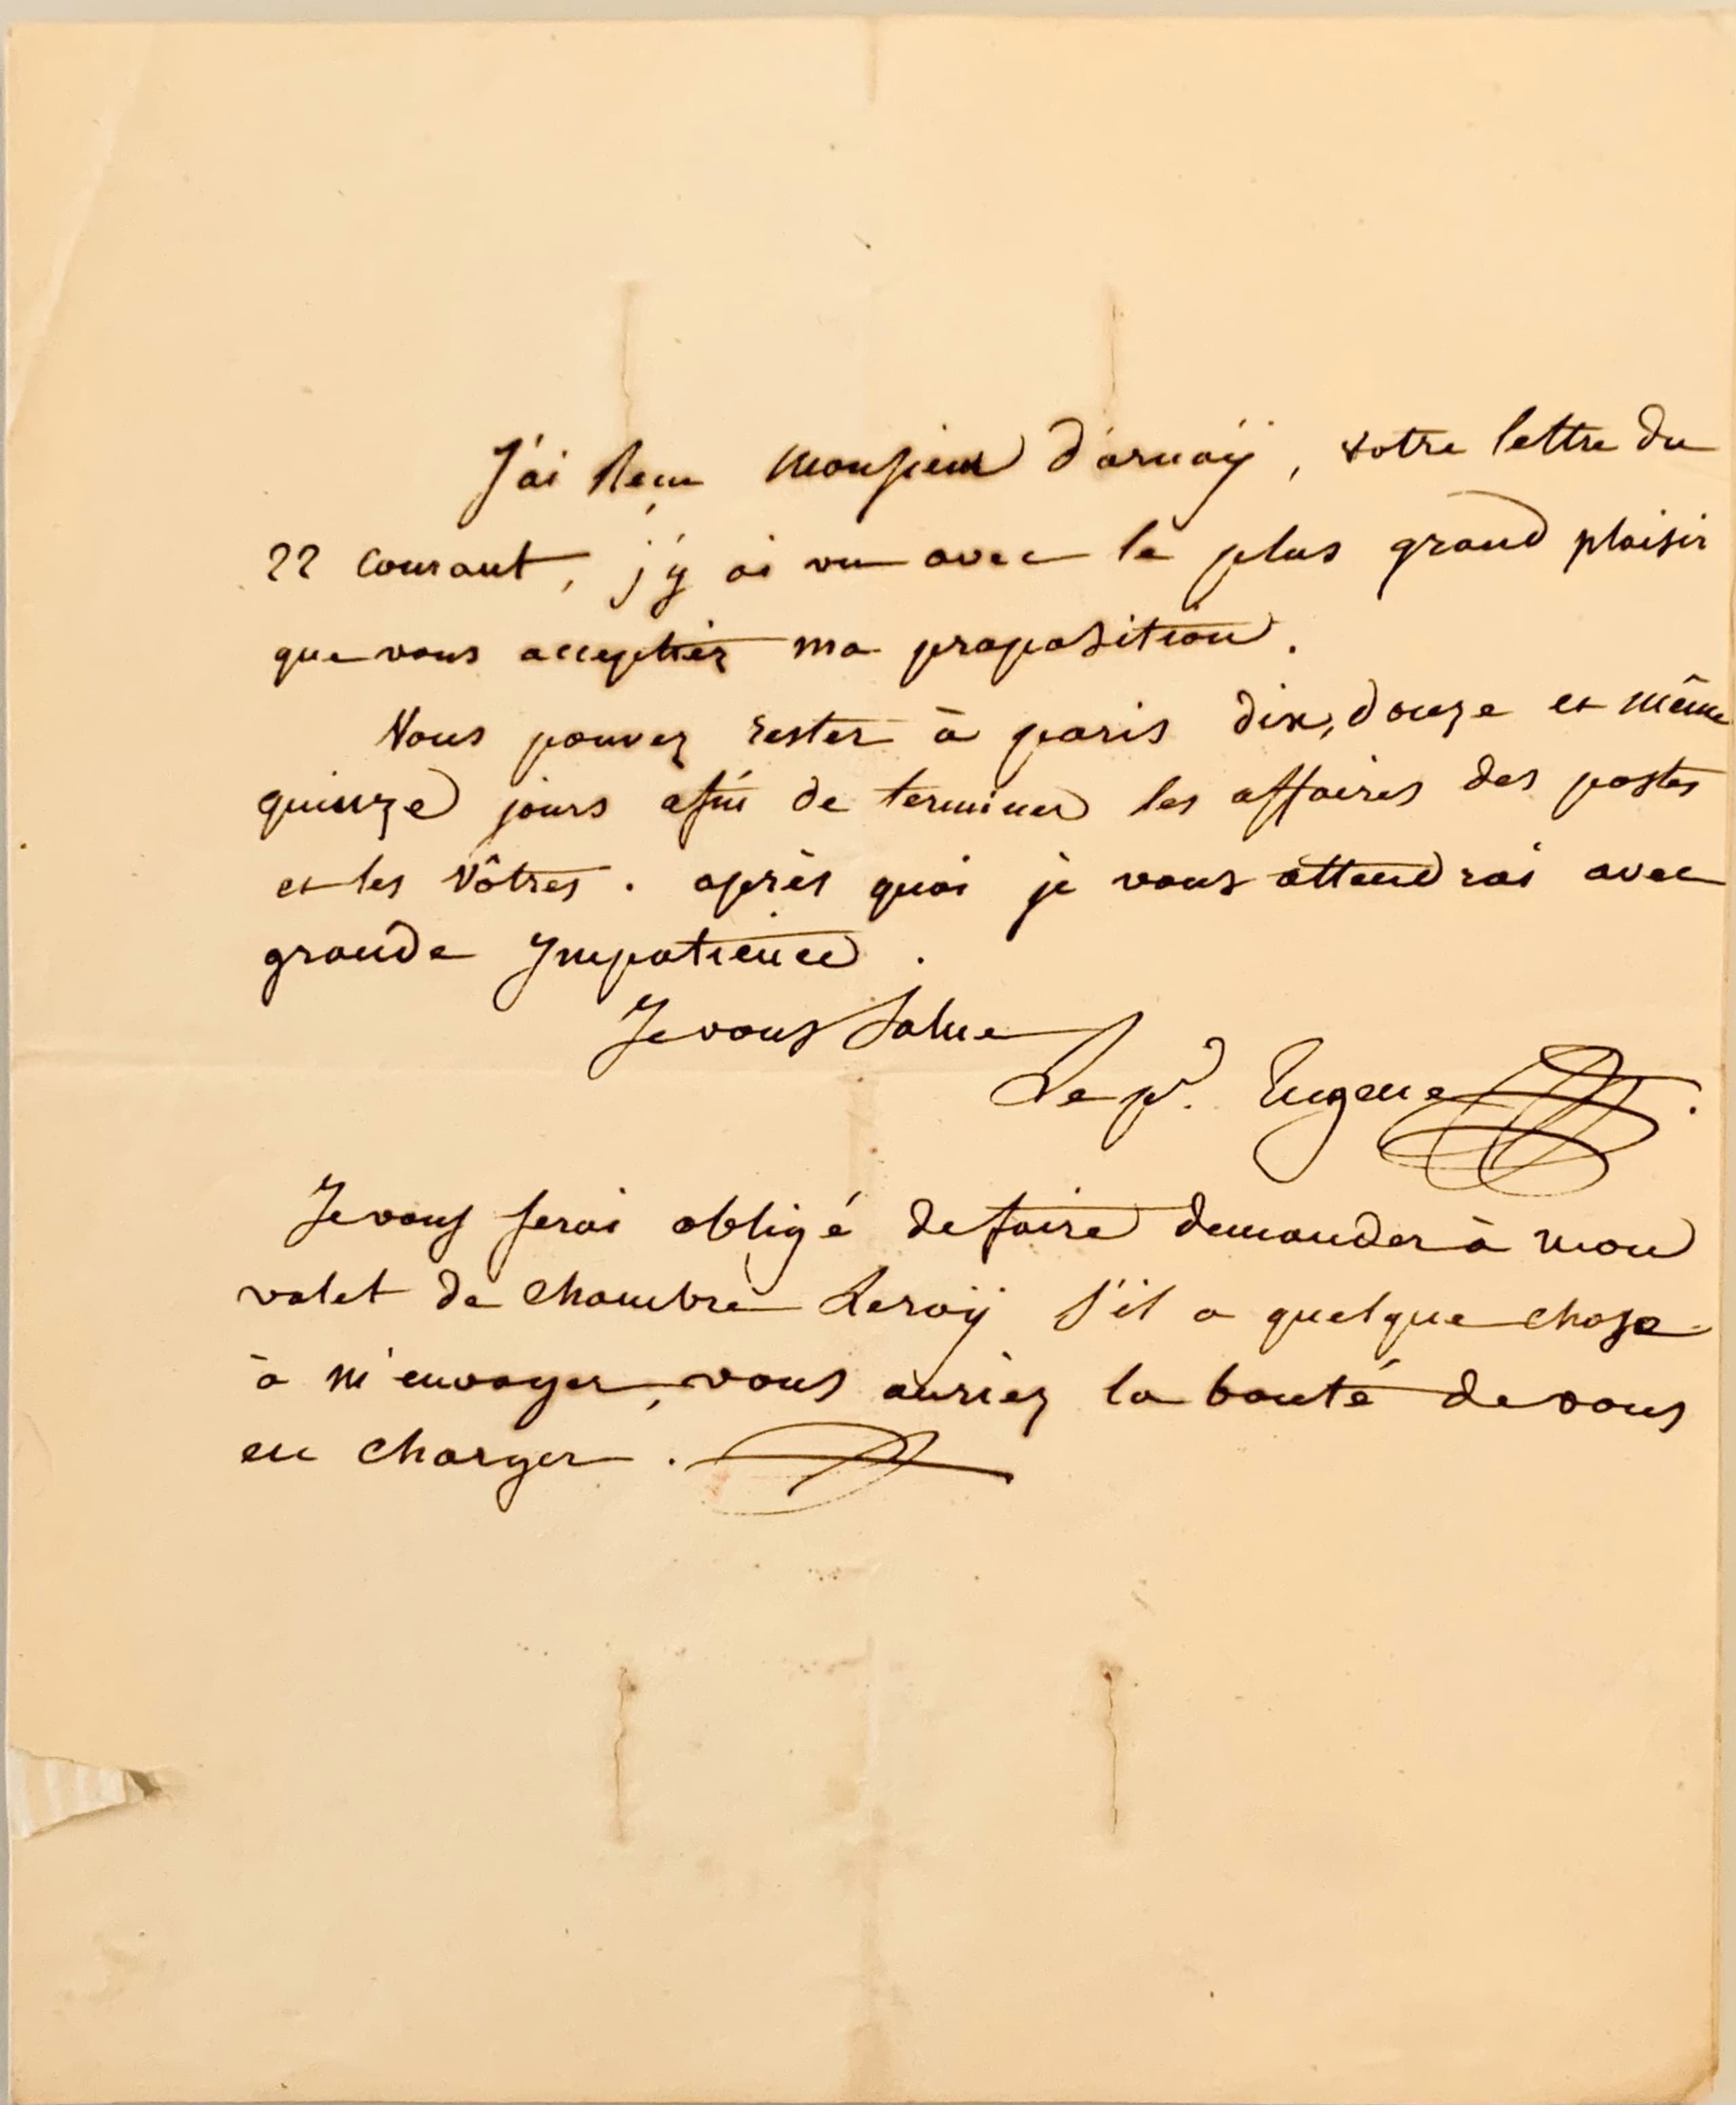 J'ai Reçu Monsieur d'arnaÿ, votre lettre du
22 courant, j'y ai vu avec le plus grand plaisir
que vous acceptiez ma proposition.
Vous pouvez rester à paris dix, douze et même
quinze jours afin de terminer les affaires des postes
et les vôtres. après quoi je vous attendrai avec
grande Impatience.
Je vous Salue
Le p.ce Eugene
Je vous serai obligé de faire demander à mon
valet de chambre Leroÿ s'il a quelque chose
à m'envoyer, vous auriez la bonté de vous
en charger.